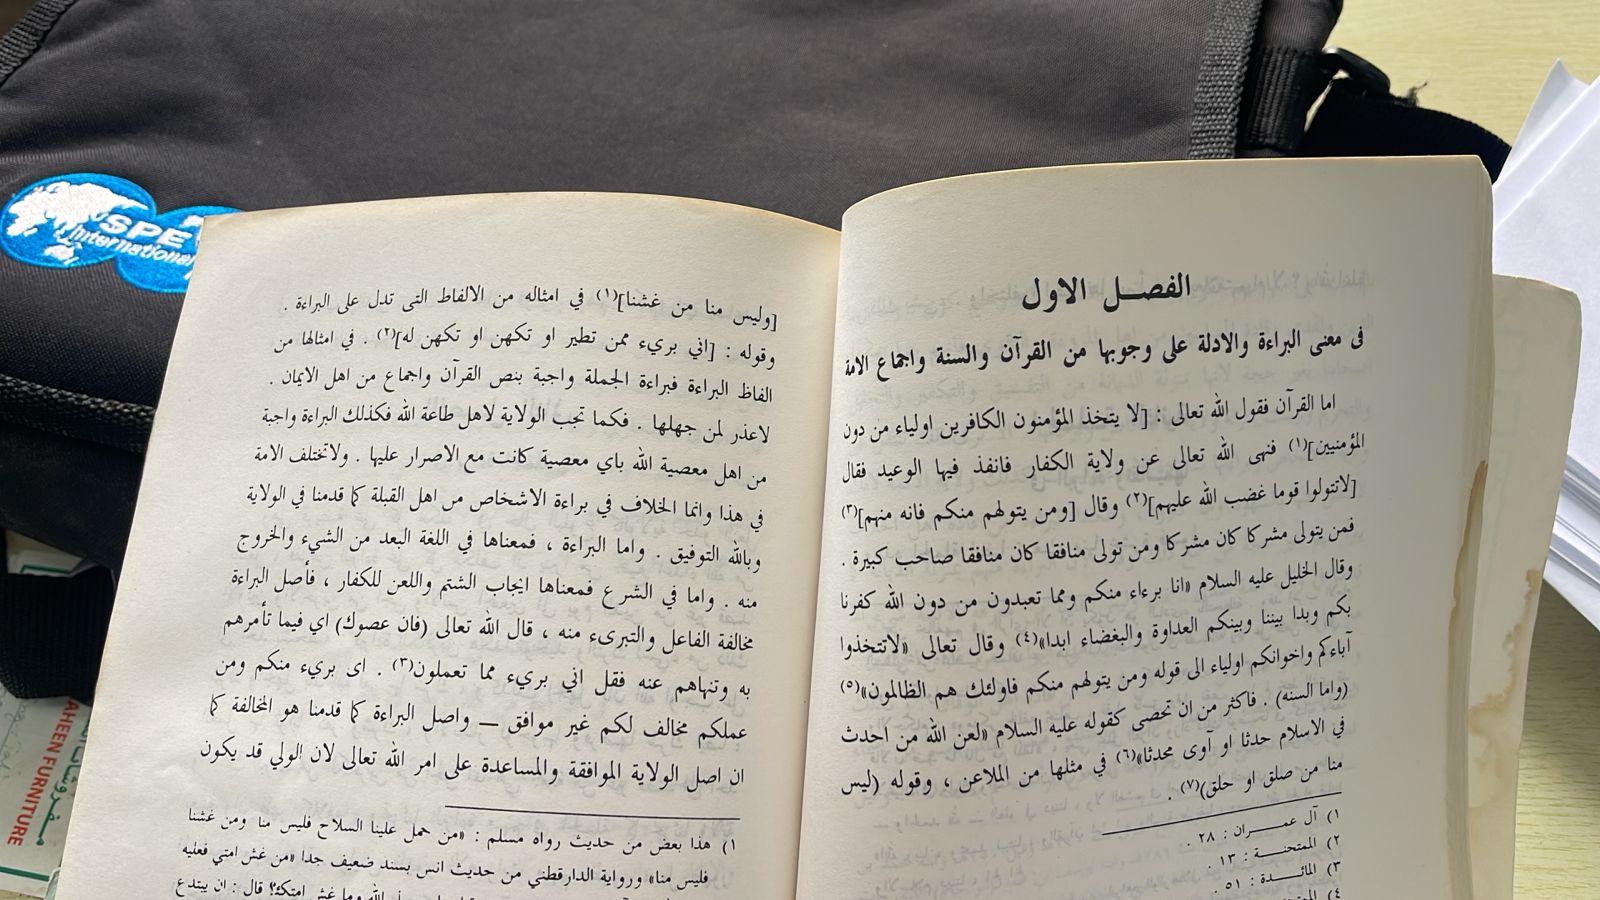 الفصل الاول
فى معنى البراءة والادلة على وجوبها من القرآن والسنة واجماع الامة
اما القرآن فقول الله تعالى : [لا يتخذ المؤمنون الكافرين اولياء من دون
المؤمنين](١) فنهى الله تعالى عن ولاية الكفار فانفذ فيها الوعيد فقال
[لاتتولوا قوما غضب الله عليهم](٢) وقال [ومن يتولهم منكم فانه منهم](٣)
فمن يتولى مشركا كان مشركا ومن تولى منافقا كان منافقا صاحب كبيرة .
وقال الخليل عليه السلام «انا برءاء منكم ومما تعبدون من دون الله كفرنا
بكم وبدا بيننا وبينكم العداوة والبغضاء ابدا»(٤) وقال تعالى «لاتتخذوا
آباءكم واخوانكم اولياء الى قوله ومن يتولهم منكم فاولئك هم الظالمون»(٥)
(واما السنه) . فاكثر من ان تحصى كقوله عليه السلام «لعن الله من احدث
في الاسلام حدثا او آوى محدثا»(٦) في مثلها من الملاعن ، وقوله (ليس
منا من صلق او حلق)(٧) .
١) آل عمـــران : ٢٨ .
٢) الممتحنـــة : ١٣ .
٣) المائـــدة : ٥١ .
[وليس منا من غشنا](١) في امثاله من الالفاظ التى تدل على البراءة .
وقوله : [اني بريء ممن تطير او تكهن او تكهن له](٢) . في امثالها من
الفاظ البراءة فبراءة الجملة واجبة بنص القرآن واجماع من اهل الايمان .
لاعذر لمن جهلها . فكما تجب الولاية لاهل طاعة الله فكذلك البراءة واجبة
من اهل معصية الله باي معصية كانت مع الاصرار عليها . ولاتختلف الامة
في هذا وانما الخلاف في براءة الاشخاص من اهل القبلة كما قدمنا في الولاية
وبالله التوفيق . واما البراءة ، فمعناها في اللغة البعد من الشيء والخروج
منه . واما في الشرع فمعناها ايجاب الشتم واللعن للكفار ، فأصل البراءة
مخالفة الفاعل والتبرىء منه ، قال الله تعالى (فان عصوك) اي فيما تأمرهم
به وتنهاهم عنه فقل اني بريء مما تعملون(٣) . اى بريء منكم ومن
عملكم مخالف لكم غير موافق — واصل البراءة كما قدمنا هو المخالفة كما
ان اصل الولاية الموافقة والمساعدة على امر الله تعالى لان الولي قد يكون
١) هذا بعض من حديث رواه مسلم : «من حمل علينا السلاح فليس منا ومن غشنا
فليس منا» ورواية الدارقطني من حديث انس بسند ضعيف جدا «من غش امتي فعليه
الله وما غش امتك؟ قال : ان يبتدع
SPE
International
AHEEN FURNITURE